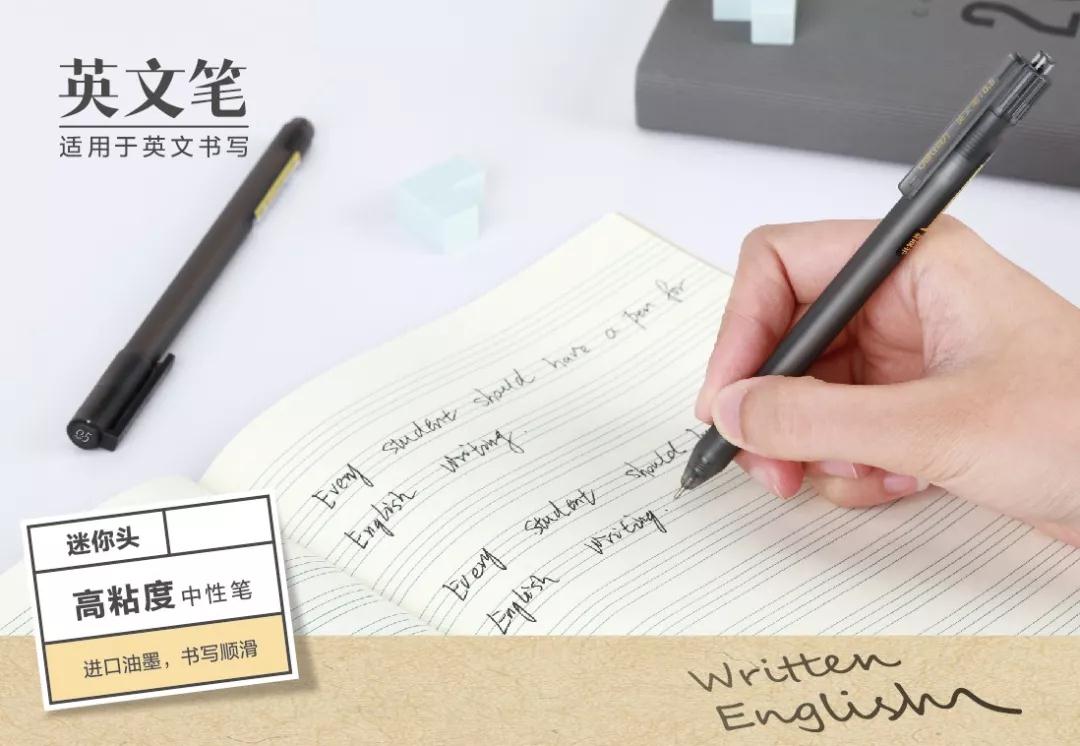 英文笔
适用于英文书写
Every student should have a pen for
English writing.
Every student should
English writing.
0.5
迷你头
高粘度中性笔
进口油墨，书写顺滑
Written
English